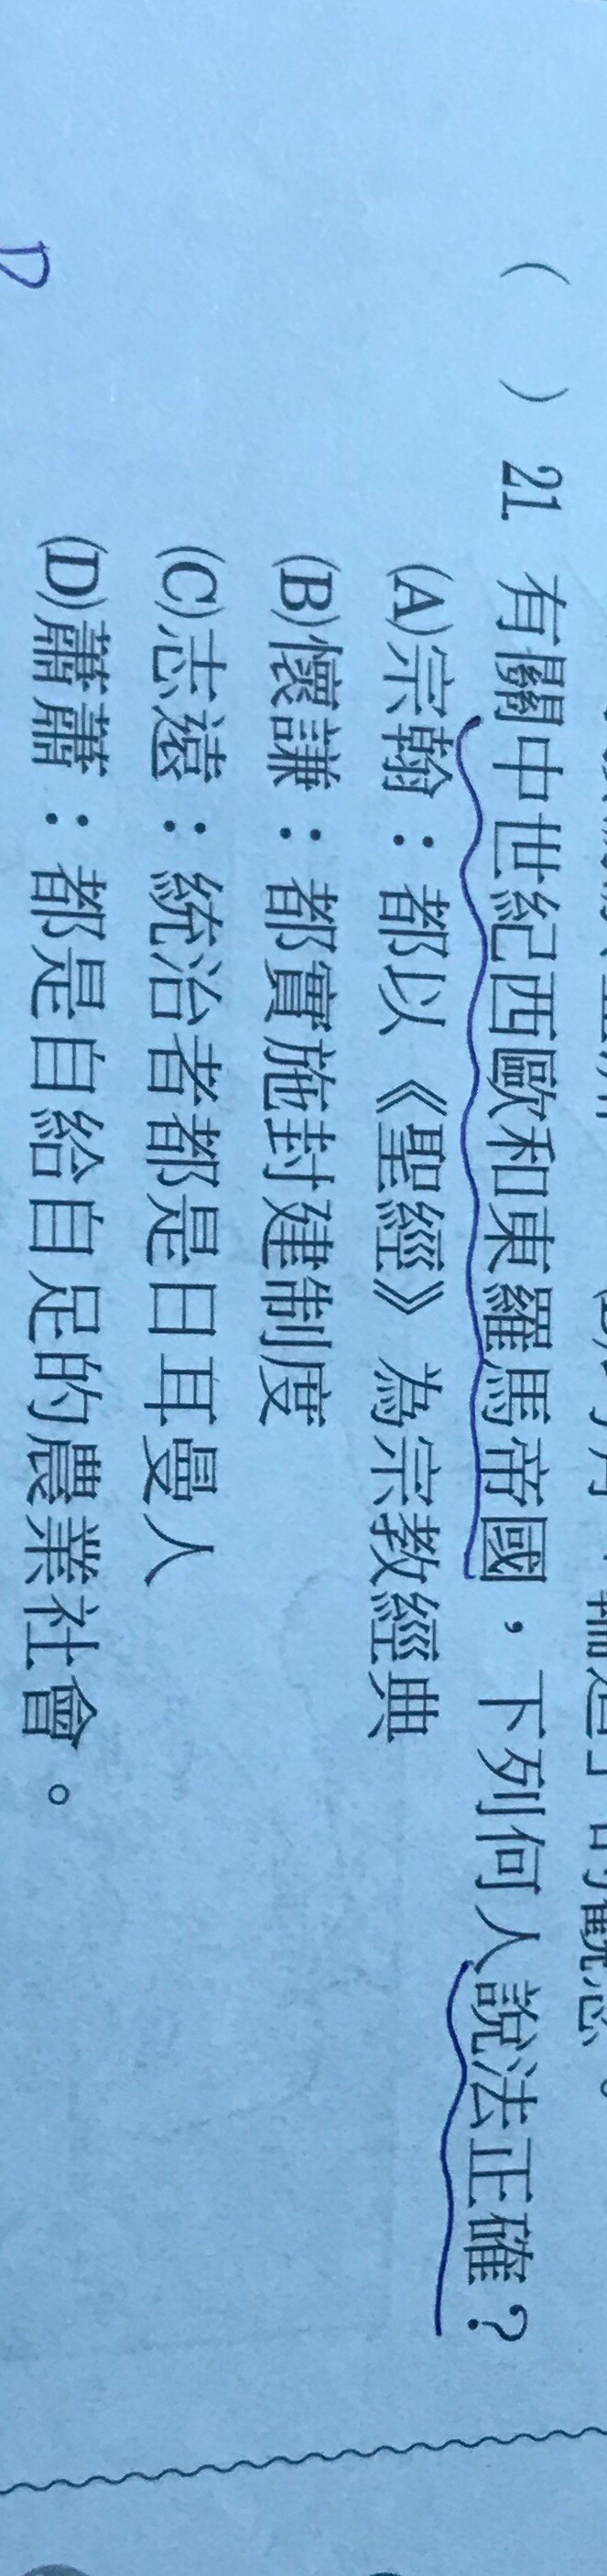 ( ) 21. 有關中世紀西歐和東羅馬帝國,下列何人說法正確?
(A)宗翰:都以《聖經》為宗教經典
(B)懷謙:都實施封建制度
(C)志遠:統治者都是日耳曼人
(D)蕭蕭:都是自給自足的農業社會。
D